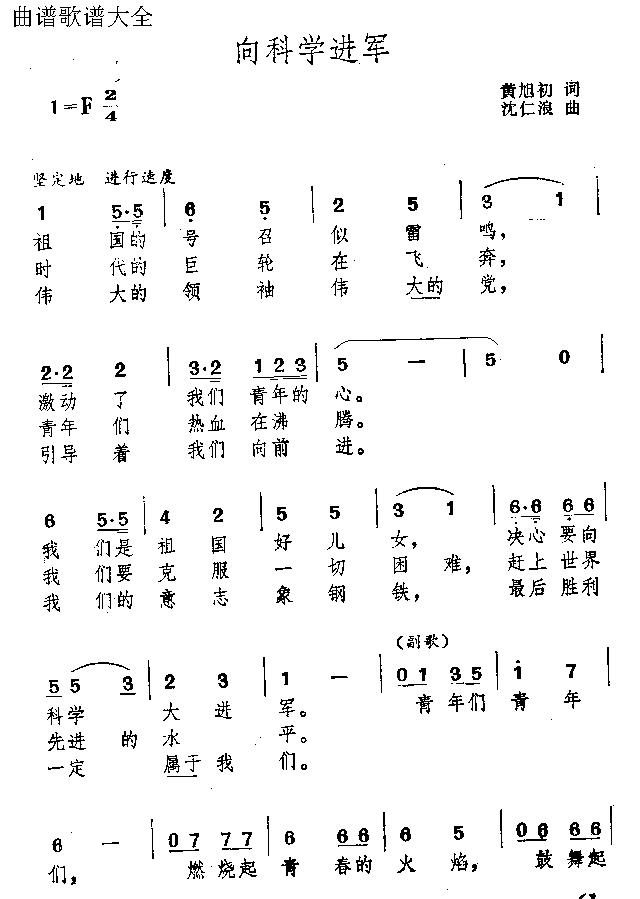 曲谱歌谱大全
向科学进军
1=F 2/4
黄旭初 词
沈仁浪 曲
坚定地 进行速度
1 5·5 | 6 5 | 2 5 | 3 1 |
祖 国的 号 召 似 雷 鸣，
时 代的 巨 轮 在 飞 奔，
伟 大的 领 袖 伟 大的 党，
2·2 2 | 3·2 1 2 3 | 5 — | 5 0
激动 了 我们 青年的 心。
青年 们 热血 在沸 腾。
引导 着 我们 向前 进。
6 5·5 | 4 2 | 5 5 | 3 1 | 6·6 6 6
我 们是 祖 国 好 儿 女， 决心 要向
我 们要 克 服 一 切 困 难， 赶上 世界
我 们的 意 志 象 钢 铁， 最后 胜利
(副歌)
5 5 3 | 2 3 | 1 — | 0 1 3 5 | 1 7 |
科学 大 进 军。 青 年们 青 年
先进 的 水 平。
一定 属于 我 们。
6 — | 0 7 7 7 | 6 6 6 | 6 5 | 0 6 6 6 |
们， 燃 烧起 青 春的 火 焰， 鼓 舞起